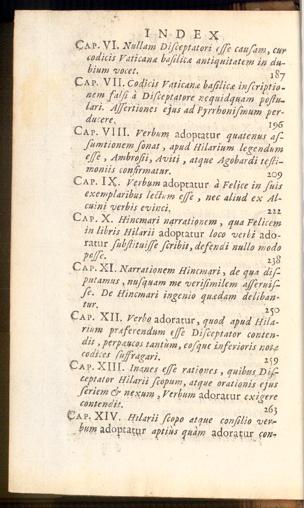 INDEX
CAP. VI. Nullam Disceptatori esse causam, cur
codicis Vaticanæ basilicæ antiquitatem in du-
bium vocet. 187
CAP. VII. Codicis Vaticanæ basilicæ inscriptio-
nem falsi à Disceptatore nequidquam postu-
lari. Assertiones ejus ad Pyrrhonismum per-
ducere. 196
CAP. VIII. Verbum adoptatur quatenus as-
sumtionem sonat, apud Hilarium legendum
esse, Ambrosii, Aviti, atque Agobardi testi-
moniis confirmatur. 209
CAP. IX. Verbum adoptatur à Felice in suis
exemplaribus lectum esse, nec aliud ex Al-
cuini verbis evinci. 222
CAP. X. Hincmari narrationem, qua Felicem
in libris Hilarii adoptatur loco verbi ado-
ratur substituisse scribit, defendi nullo modo
posse. 238
CAP. XI. Narrationem Hincmari, de qua dis-
putamus, nusquam me verisimilem asseruis-
se. De Hincmari ingenio quædam deliban-
tur. 250
CAP. XII. Verbo adoratur, quod apud Hila-
rium præferendum esse Disceptator conten-
dit, perpaucos tantùm, eosque inferioris notæ
codices suffragari. 259
CAP. XIII. Inanes esse rationes, quibus Dis-
ceptator Hilarii scopum, atque orationis ejus
seriem & nexum, Verbum adoratur exigere
contendit. 263
CAP. XIV. Hilarii scopo atque consilio ver-
bum adoptatur aptiùs quàm adoratur con-